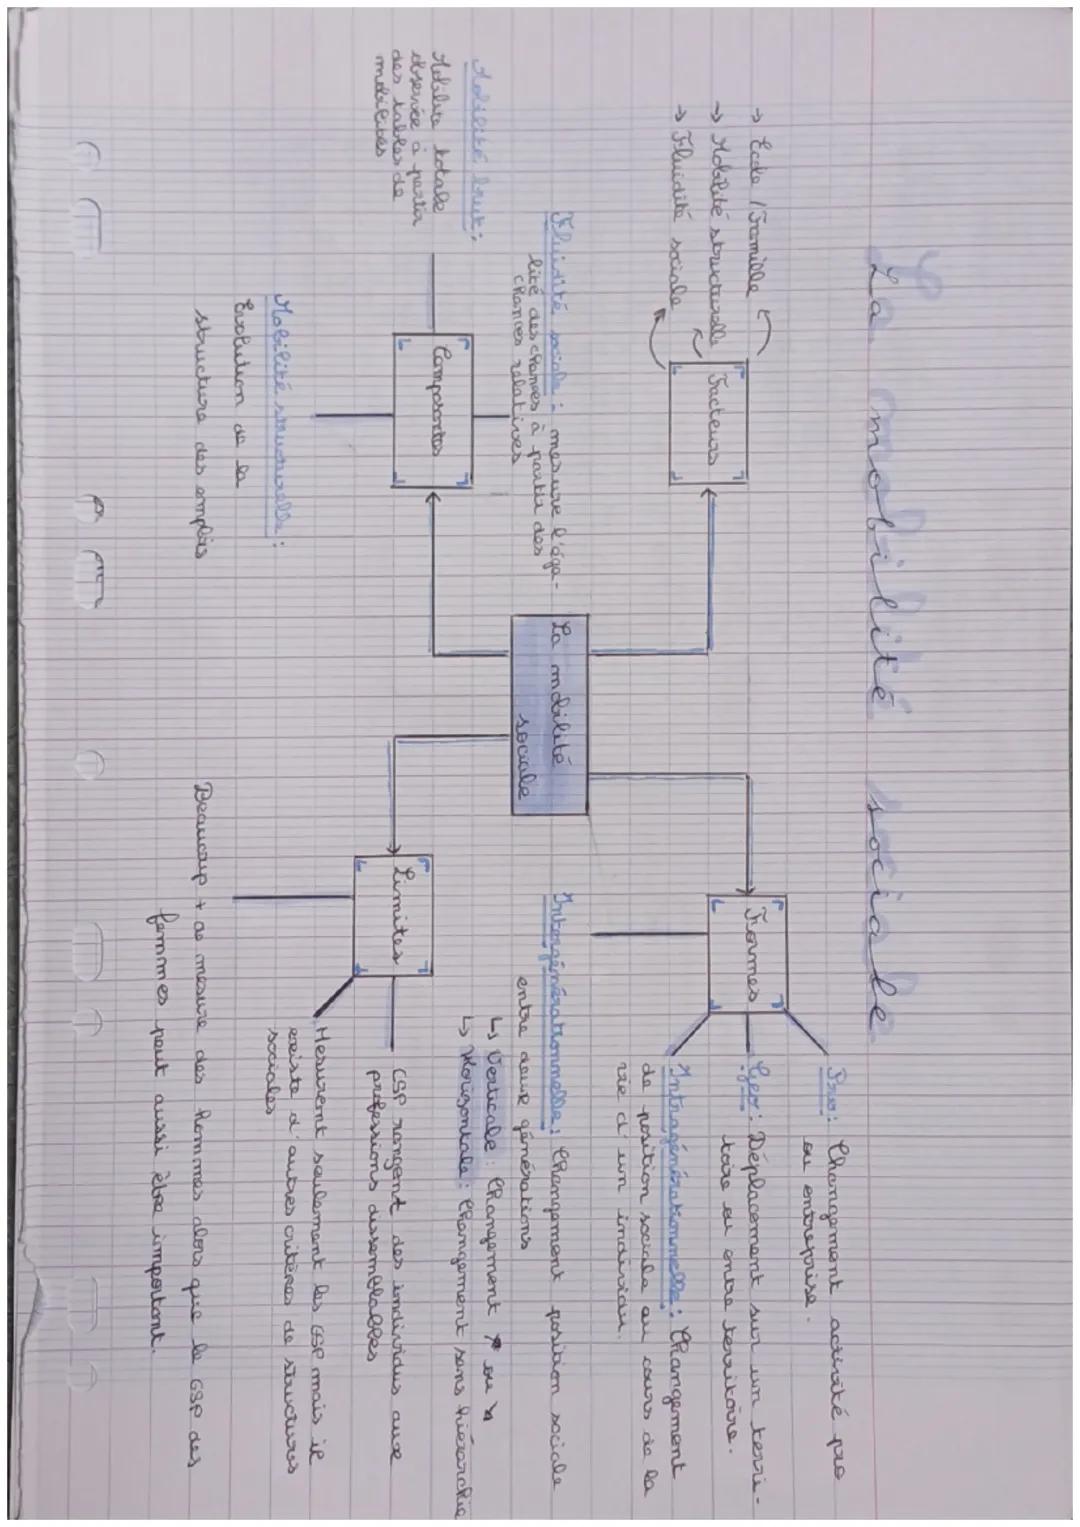 La mobilité sociale
→ Ecole / Famille
→ Mobilité structurelle
→ Fluidité sociale
Facteurs
Formes
Pro : Changement activité pro
ou entreprise.
Geo : Déplacement sur un terri-
toire ou entre territoire.
Intragénérationnelle : Changement
de position sociale au cours de la
vie d'un individu.
Intergénérationnelle : Changement position sociale
entre deux générations
↳ Verticale : Changement ↗ ou ↘
↳ Horizontale : Changement sans hiérarchie
La mobilité
sociale
Fluidité sociale : mesure l'éga-
lité des chances à partir des
chances relatives
Composantes
Mobilité brut :
Mobilité totale
observée à partir
des tables de
mobilités
Mobilité structurelle :
Evolution de la
structure des emplois
Limites
CSP rangent des individus aux
professions dissemblables
Mesurent seulement les CSP mais il
existe d'autres critères de structures
sociales
Beaucoup + de mesure des hommes alors que la CSP des
femmes peut aussi être important.